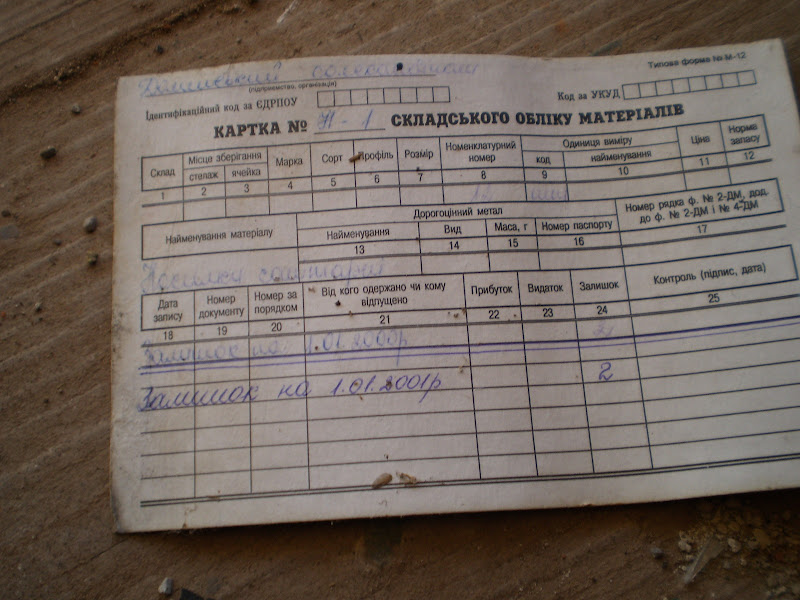 Типова форма № М-12
(підприємство, організація)
Ідентифікаційний код за ЄДРПОУ
Код за УКУД
КАРТКА № Н-1 СКЛАДСЬКОГО ОБЛІКУ МАТЕРІАЛІВ
Склад Місце зберігання Марка Сорт Профіль Розмір Номенклатурний номер Одиниця виміру Ціна Норма запасу
стелаж ячейка код найменування
1 2 3 4 5 6 7 8 9 10 11 12
Найменування матеріалу Дорогоцінний метал Номер рядка ф. № 2-ДМ, дод. до ф. № 2-ДМ і № 4-ДМ
Найменування Вид Маса, г Номер паспорту
13 14 15 16 17
Носилки санітарні
Дата запису Номер документу Номер за порядком Від кого одержано чи кому відпущено Прибуток Видаток Залишок Контроль (підпис, дата)
18 19 20 21 22 23 24 25
Залишок на 1.01.2000р 2
Залишок на 1.01.2001р 2